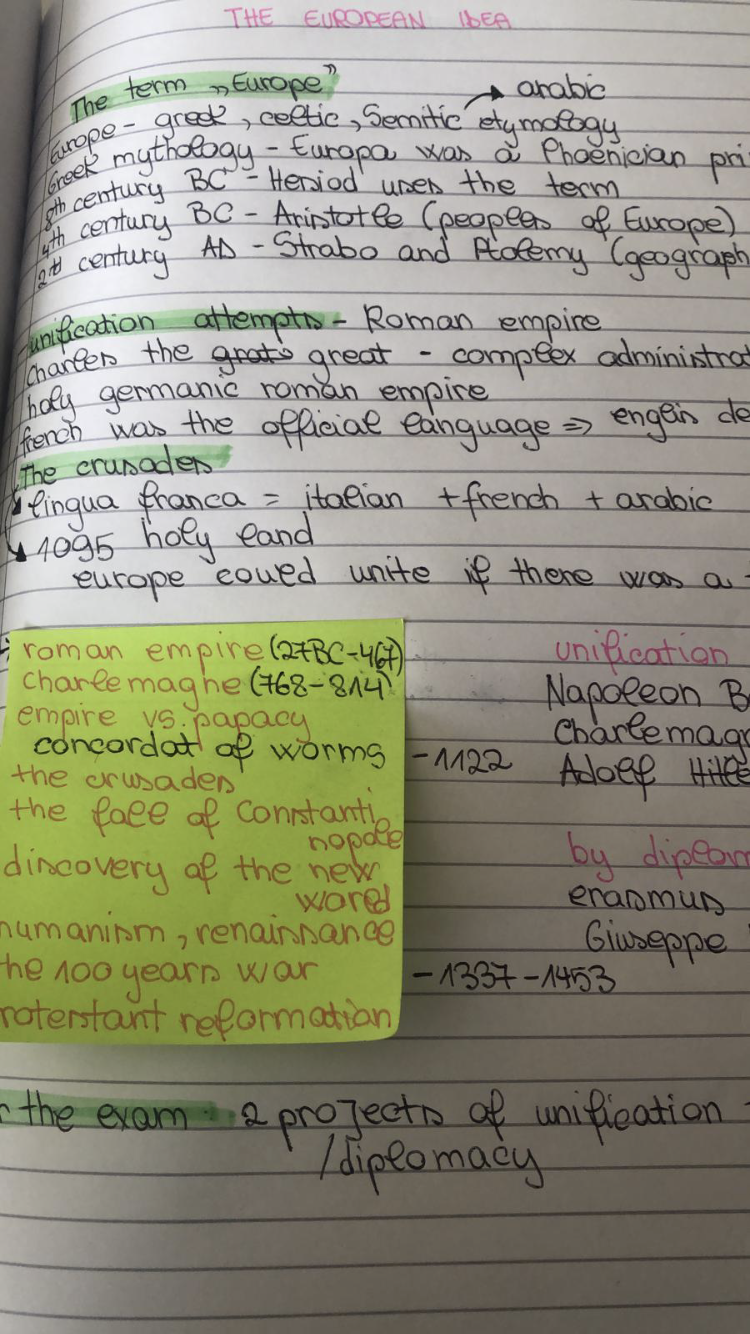 THE EUROPEAN IDEA
The term „Europe”
arabic
Europe - greek, celtic, Semitic etymology
Greek mythology - Europa was a Phoenician pri
8th century BC - Hesiod uses the term
4th century BC - Aristotle (peoples of Europe)
2nd century AD - Strabo and Ptolemy (geograph
unification attempts - Roman empire
Charles the great - complex administrat
holy germanic roman empire
french was the official language => de
The crusades
lingua franca = italian + french + arabic
1095 holy land
europe could unite if there was a
roman empire (27BC-467)
charlemagne (768-814)
empire vs. papacy
concordat of worms -1122
the crusades
the fall of Constanti
nopole
discovery of the new
world
humanism, renaissance
he 100 years war -1337-1453
roterstant reformation
unification
Napoleon B
Charlemag
Adolf Hitle
by diplom
erasmus
Giuseppe
r the exam 2 projects of unification
/diplomacy